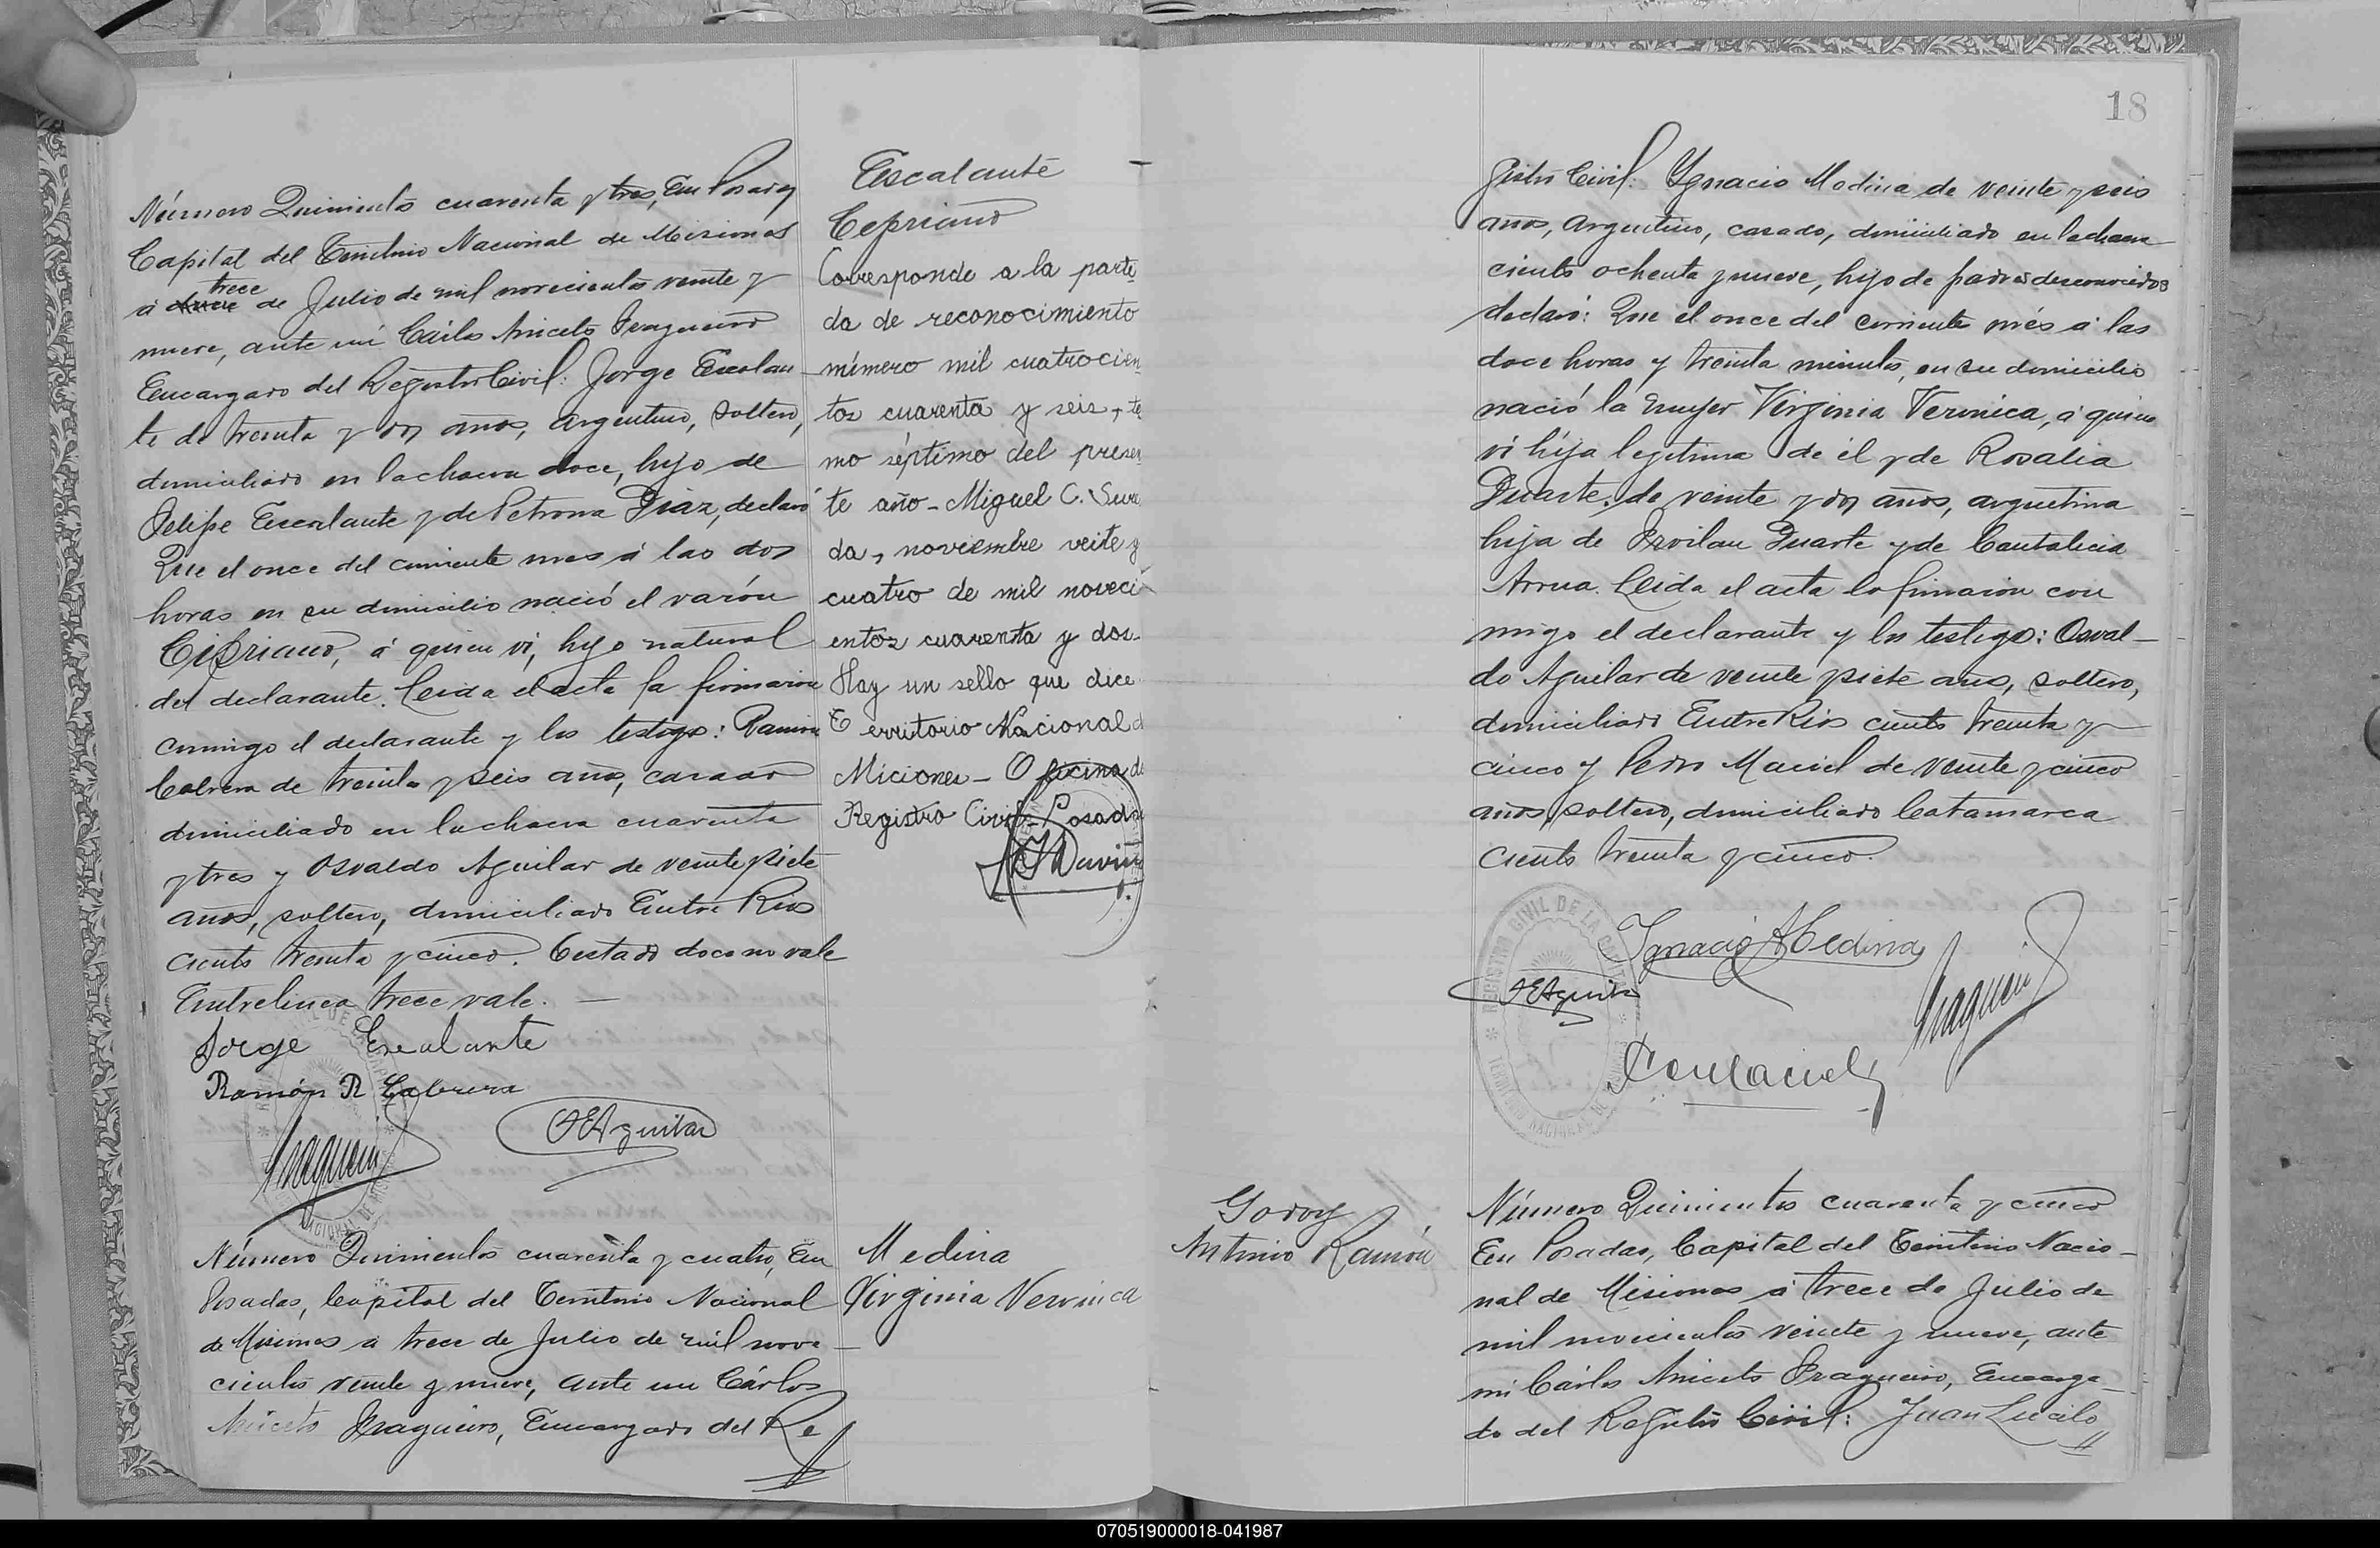 Número Quinientos cuarenta y tres, En Posadas
Capital del Territorio Nacional de Misiones
trece
á doce de Julio de mil novecientos veinte y
nueve, ante mí Cárlos Aniceto Fragueiro
Encargado del Registro Civil: Jorge Escalan
te de treinta y dos años, argentino, soltero,
domiciliado en la chacra doce, hijo de
Felipe Escalante y de Petrona Diaz, declaró
Que el once del corriente mes á las dos
horas en su domicilio nació el varón
Cipriano, á quien vi, hijo natural
del declarante. Leida el acta la firmaron
conmigo el declarante y los testigos: Ramón
Cabrera de treinta y seis años, casado
domiciliado en la chacra cuarenta
y tres y Osvaldo Aguilar de veinte y siete
años, soltero, domiciliado Entre Rios
ciento treinta y cinco. Testado doce no vale
Entrelinea trece vale. —
Jorge Escalante
Ramón R Cabrera
OEAguilar
Fragueiro
Escalante
Cepriano
Corresponde a la parti
da de reconocimiento
número mil cuatrocien
tos cuarenta y seis, to
mo séptimo del presen
te año - Miguel C. Sure
da, noviembre veite y
cuatro de mil noveci
entos cuarenta y dos-
Hay un sello que dice
Territorio Nacional d
Miciones - Oficina de
Registro Civil - Posadas
Número Quinientos cuarenta y cuatro, En
Posadas, Capital del Territorio Nacional
de Misiones á trece de Julio de mil nove
cientos veinte y nueve, ante mi Cárlos
Aniceto Fragueiro, Encargado del Re
Medina
Virginia Veronica
18
gistro Civil: Ygnacio Medina de veinte y seis
años, argentino, casado, domiciliado en la chacra
ciento ochenta y nueve, hijo de padres desconocidos
declaró: Que el once del corriente més á las
doce horas y treinta minutos, en su domicilio
nació la mujer Virginia Veronica, á quien
vi hija legitima de él y de Rosalia
Duarte, de veinte y dos años, argentina
hija de Froilan Duarte y de Cantalicia
Arrua. Leida el acta la firmaron con
migo el declarante y los testigos: Osval-
do Aguilar de veinte y siete años, soltero,
domiciliado Entre Rios ciento treinta y
cinco y Pedro Maciel de veinte y cinco
años, soltero, domiciliado Catamarca
ciento treinta y cinco.
REGISTRO CIVIL DE LA CAPITAL
Ignacio Medina
OEAguilar
Fragueiro
Godoy
Antonio Ramón
Número Quinientos cuarenta y cinco
En Posadas, Capital del Territorio Nacio-
nal de Misiones á trece de Julio de
mil novecientos veinte y nueve, ante
mi Cárlos Aniceto Fragueiro, Encarga-
do del Registro Civil: Juan Lucilo
070519000018-041987